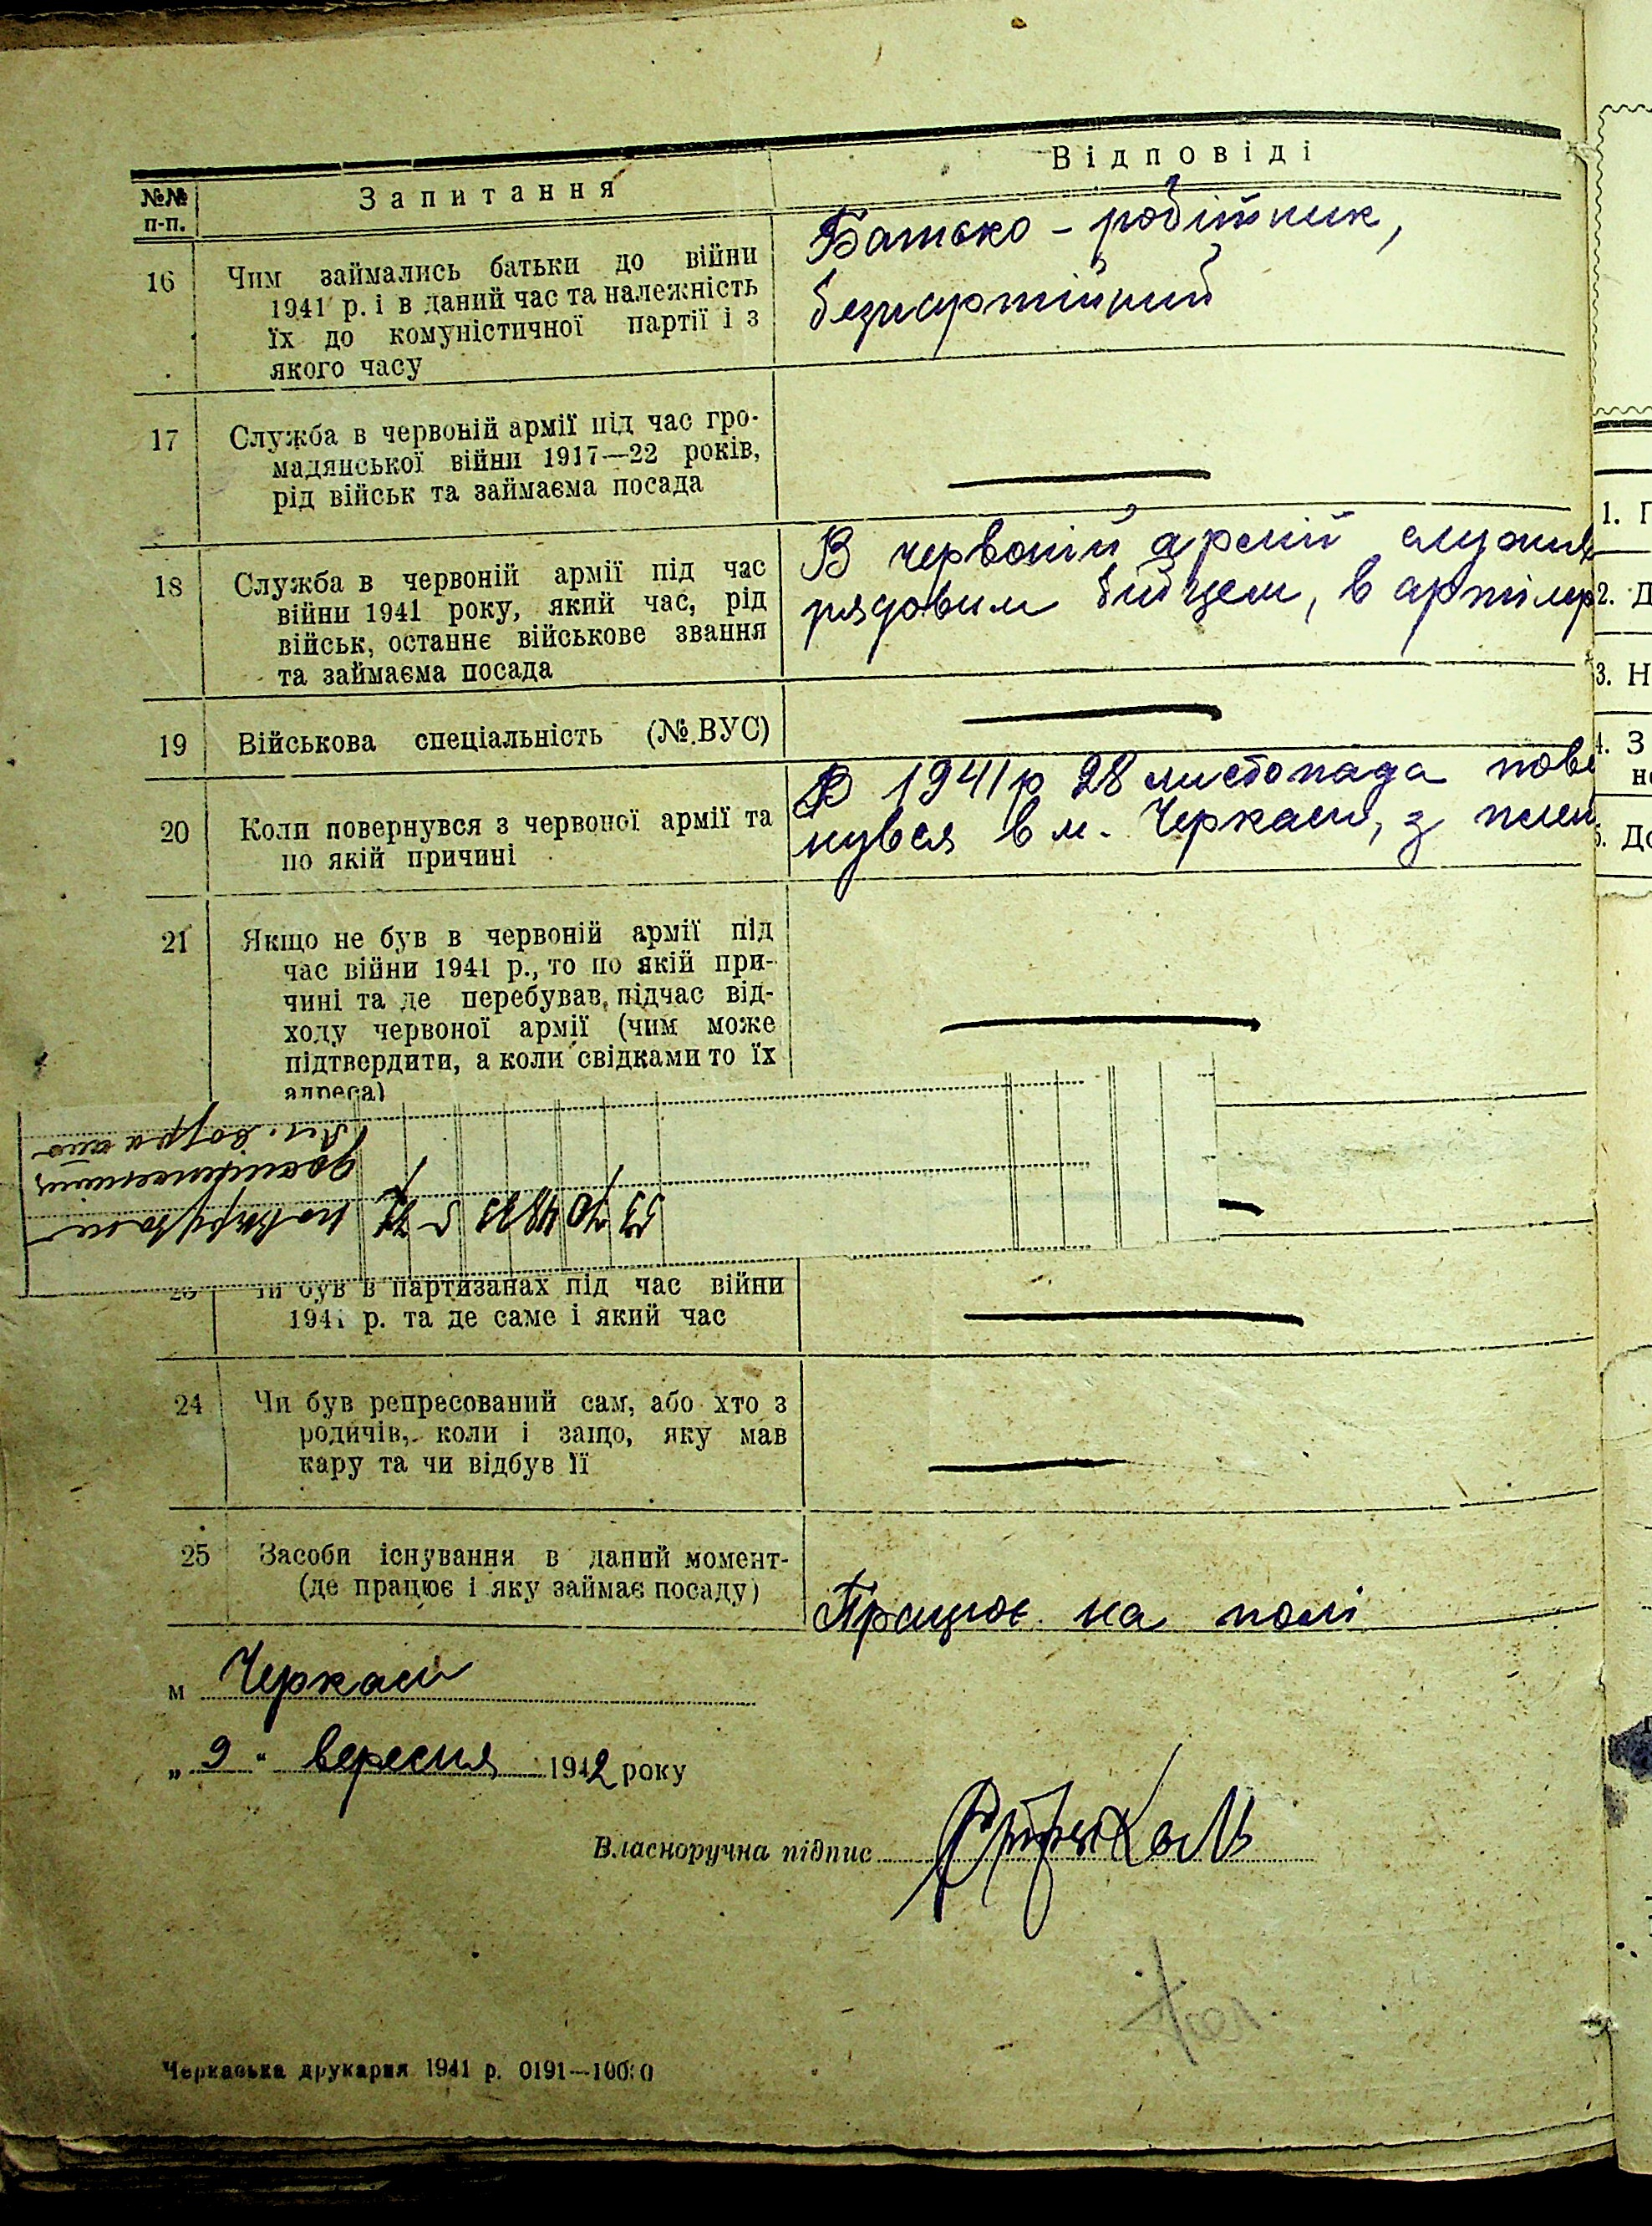 №№ п-п.
Запитання
Відповіді
16
Чим займались батьки до війни
1941 р. і в даний час та належність
їх до комуністичної партії і з
якого часу
Батько – робітник,
безпартійний
17
Служба в червоній армії під час гро-
мадянської війни 1917—22 років,
рід військ та займаєма посада
18
Служба в червоній армії під час
війни 1941 року, який час, рід
військ, останнє військове звання
та займаєма посада
В червоній армії служив
рядовим бійцем, в артилер
19
Військова спеціальність (№ ВУС)
20
Коли повернувся з червоної армії та
по якій причині
В 1941 р 28 листопада пове
нувся в м. Черкаси, з полон
21
Якщо не був в червоній армії під
час війни 1941 р., то по якій при-
чині та де перебував, підчас від-
ходу червоної армії (чим може
підтвердити, а коли свідками то їх
адреса)
Чи був в партизанах під час війни
1941 р. та де саме і який час
24
Чи був репресований сам, або хто з
родичів, коли і защо, яку мав
кару та чи відбув її
25
Засоби існування в даний момент-
(де працює і яку займає посаду)
Працює на полі
м Черкаси
„ 9 " вересня 1942 року
Власноручна підпис
Черкаська друкарня 1941 р. 0191—10000
1. Г
2. Д
3. Н
4. З
5. До